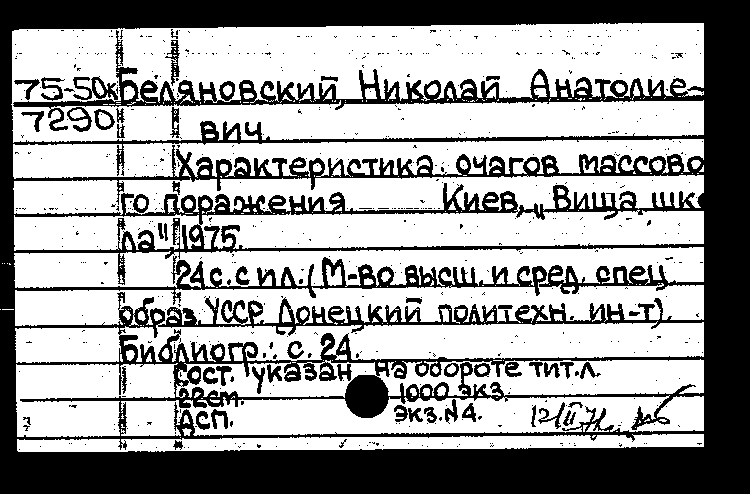 75-50к Беляновский, Николай Анатолие-
7290 вич.
Характеристика очагов массово
го поражения. Киев, „Вища шко
ла", 1975.
24 с. с ил. (М-во высш. и сред. спец
образ. УССР. Донецкий политехн. ин-т).
Библиогр.: с. 24.
Сост. указан на обороте тит. л.
22 см. 1000 экз.
ДСП. Экз. №4. 12/II